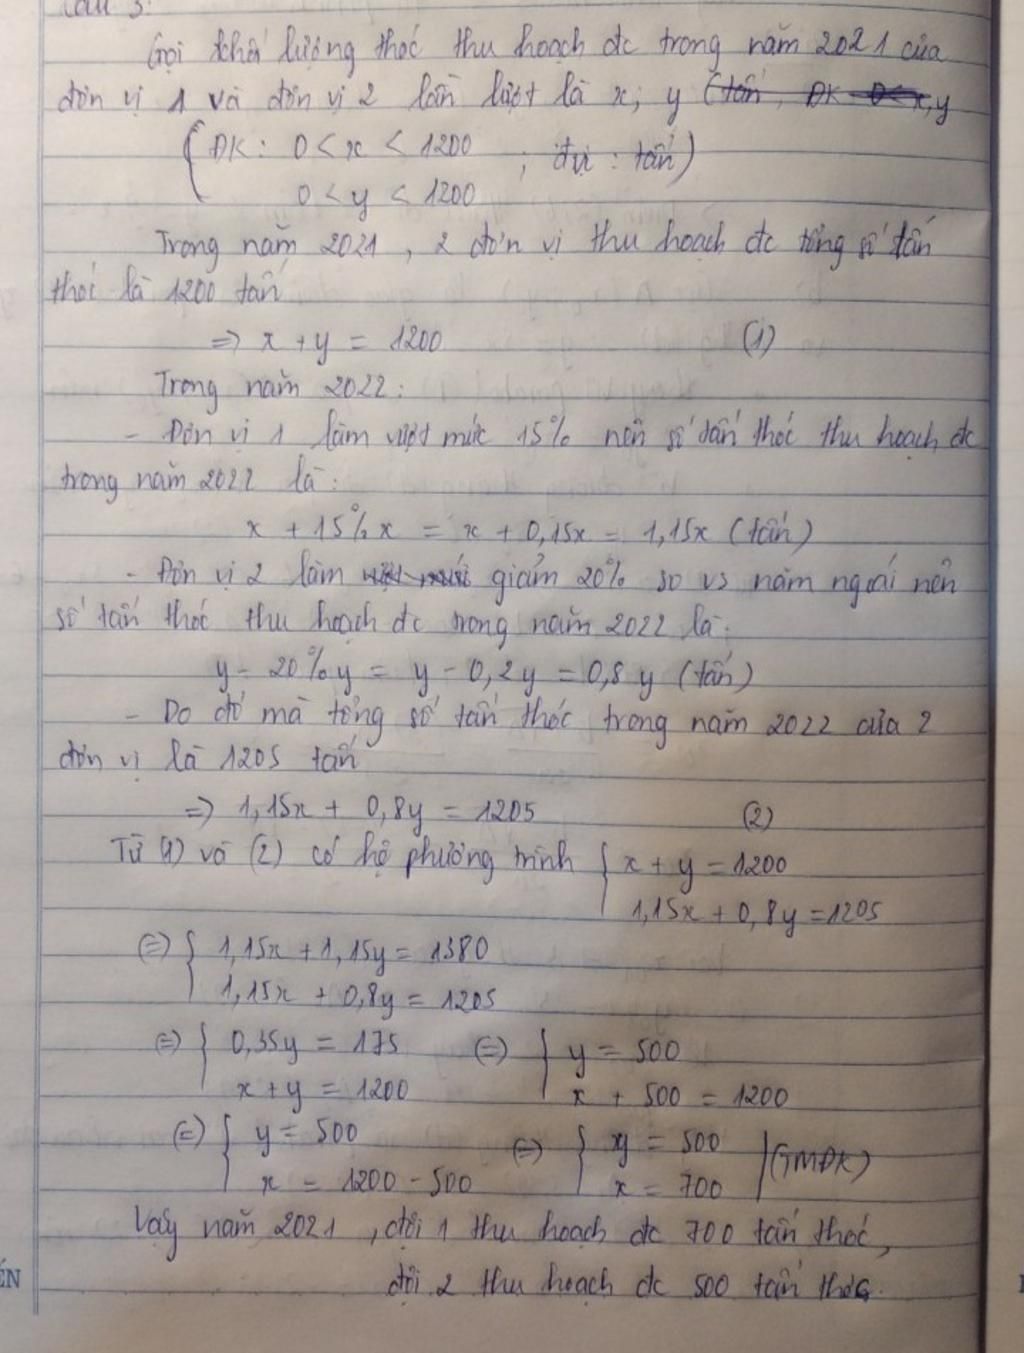 Câu 3:
Gọi khối lượng thóc thu hoạch đc trong năm 2021 của
đơn vị 1 và đơn vị 2 lần lượt là x; y (tấn, ĐK 0<x,y
(ĐK: 0 < x < 1200 ; đvị : tấn)
0 < y < 1200
Trong năm 2021, 2 đơn vị thu hoạch đc tổng số tấn
thóc là 1200 tấn
=> x + y = 1200 (1)
Trong năm 2022:
- Đơn vị 1 làm vượt mức 15% nên số tấn thóc thu hoạch đc
trong năm 2022 là:
x + 15%x = x + 0,15x = 1,15x (tấn)
- Đơn vị 2 làm giảm 20% so vs năm ngoái nên
số tấn thóc thu hoạch đc trong năm 2022 là:
y - 20%y = y - 0,2y = 0,8y (tấn)
- Do đó mà tổng số tấn thóc trong năm 2022 của 2
đơn vị là 1205 tấn
=> 1,15x + 0,8y = 1205 (2)
Từ (1) và (2) có hệ phương trình { x + y = 1200
1,15x + 0,8y = 1205
(=) { 1,15x + 1,15y = 1380
1,15x + 0,8y = 1205
(=) { 0,35y = 175 (=) { y = 500
x + y = 1200 x + 500 = 1200
(=) { y = 500 (=) { xy = 500 | (TMĐK)
x = 1200 - 500 x = 700
Vậy năm 2021, đội 1 thu hoạch đc 700 tấn thóc,
đội 2 thu hoạch đc 500 tấn thóc.
ÉN